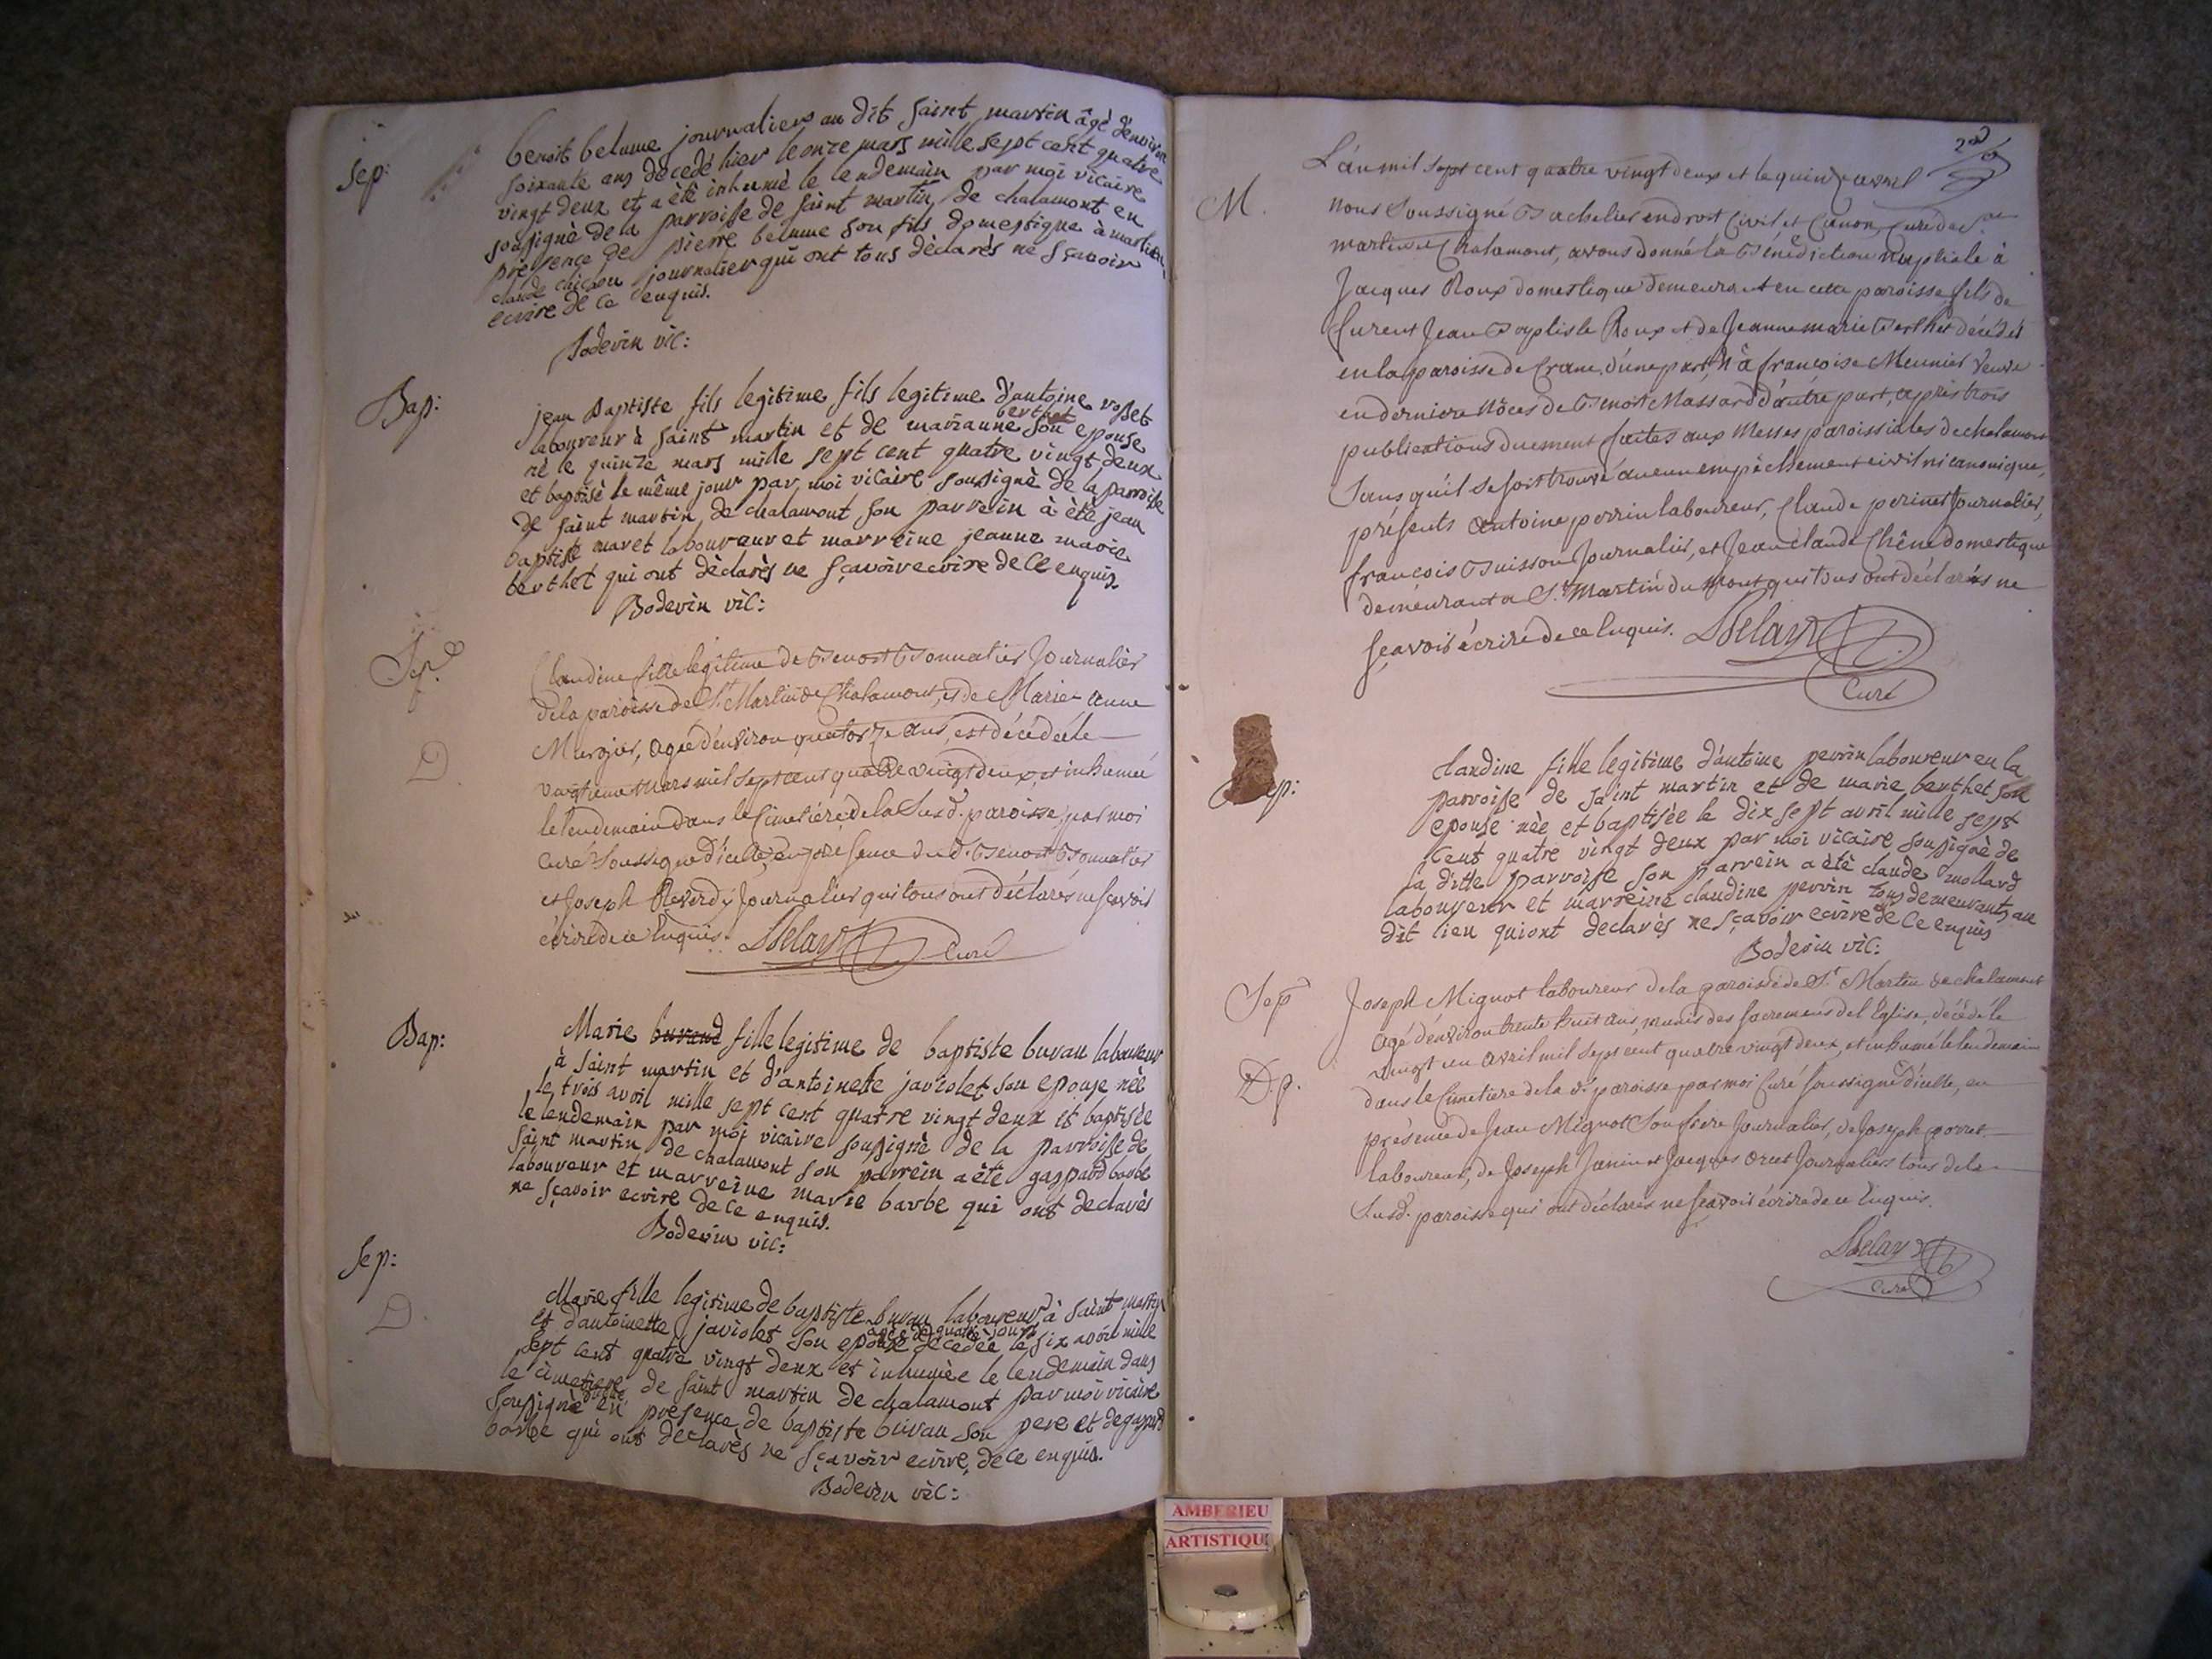 Sep:
benoit belume journalier au dit saint martin âgé d'environ
soixante ans décédé hier le onze mars mille sept cent quatre
vingt deux et a été inhumé le lendemain par moi vicaire
soussigné de la parroisse de saint martin de chalamont en
présence de pierre belume son fils domestique à
claude journalier qui ont tous déclarés ne sçavoir
ecrire de ce enquis.
Bodevin vic:
Bap:
jean Baptiste fils legitime fils legitime d'antoine rosset
berthet
laboureur à saint martin et de marianne son epouse
né le quinze mars mille sept cent quatre vingt deux
et baptisé le même jour par moi vicaire soussigné de la parroisse
de saint martin de chalamont son parrein à été jean
baptiste maret laboureur et marreine jeanne marie
berthet qui ont déclarés ne sçavoir ecrire de ce enquis.
Bodevin vic:
Sep.
D.
Claudine fille legitime de Benoit Bonnatier Journalier
de la paroisse de St. Martin de Chalamont, et de Marie-anne
agée d'environ quatorze ans, est décédée le
vingtieme mars mil sept cent quatre vingt deux, et inhumée
le lendemain dans le Cimetiére de la Susd. paroisse, par moi
Curé Soussigné d'icelle, en présence dud. Benoit Bonnatier
et Joseph Reverdy Journalier qui tous ont déclarés ne scavoir
écrire de ce Enquis. Delaye Curé
Bap:
Marie buvand fille legitime de baptiste buvan laboureur
à saint martin et d'antoinete javiolet son epouse née
le trois avril mille sept cent quatre vingt deux et baptisée
le lendemain par moi vicaire soussigné de la parroisse de
saint martin de chalamont son parrein a été gaspard barbe
laboureur et marreine marie barbe qui ont declarés
ne sçavoir ecrire de ce enquis.
Bodevin vic:
Sep:
D.
Marie fille legitime de baptiste buvan laboureur à saint martin
et d'antoinette javiolet son epouse agée de quatre jours décédée le six avril mille
sept cent quatre vingt deux et inhumée le lendemain dans
le cimetiere de saint martin de chalamont par moi vicaire
soussigné en présence de baptiste buvan son pere et de gaspard
barbe qui ont declarés ne sçavoir ecrire, de ce enquis.
Bodevin vic:
M.
L'an mil sept cent quatre vingt deux et le quinze avril
nous Soussigné Bachelier en droit Civil et Canon, Curé de St
martin de Chalamont, avons donné la Bénédiction Nuptiale à
Jacques Roux domestique demeurant en cette paroisse fils de
furent Jean Baptiste Roux et de Jeanne marie Berthet décédés
en la paroisse de Crane, d'une part, & à françoise Meunier Veuve
en derniere Nôces de Benoit Massard d'autre part, après trois
publications duement faites aux Messes paroissiales de chalamont
Sans qu'il se soit trouvé aucun empêchement civil ni canonique,
présents antoine perrin laboureur, Claude perinet Journalier,
françois Buisson Journalier, et Jean claude Chêne domestique
demeurant a St. Martin du Mont qui tous ont déclarés ne
sçavoir écrire de ce Enquis. Delaye
Curé
ep:
claudine fille legitime d'antoine perrin laboureur en la
parroisse de saint martin et de marie berthet son
epouse née et baptisée le dix sept avril mille sept
cent quatre vingt deux par moi vicaire soussigné de
la ditte parroisse son parrein a été claude mollard
laboureur et marreine claudine perrin tous demeurants au
dit lieu qui ont declarés ne sçavoir ecrire de ce enquis
Bodevin vic:
Sep
D.p.
Joseph Mignot laboureur de la paroisse de St. Martin de chalamont
agé d'environ trente huit ans, munis des sacremens de l'Eglise, décédé le
vingt un avril mil sept cent quatre vingt deux, et inhumé le lendemain
dans le Cimetiere de la d. paroisse par moi Curé soussigné d'icelle, en
présence de Jean Mignot son frère Journalier, de Joseph
laboureur, de Joseph Janin et Jacques Journaliers tous de la
Susd. paroisse qui ont déclarés ne scavoir écrire de ce Enquis.
Delaye
Curé
AMBERIEU
ARTISTIQU